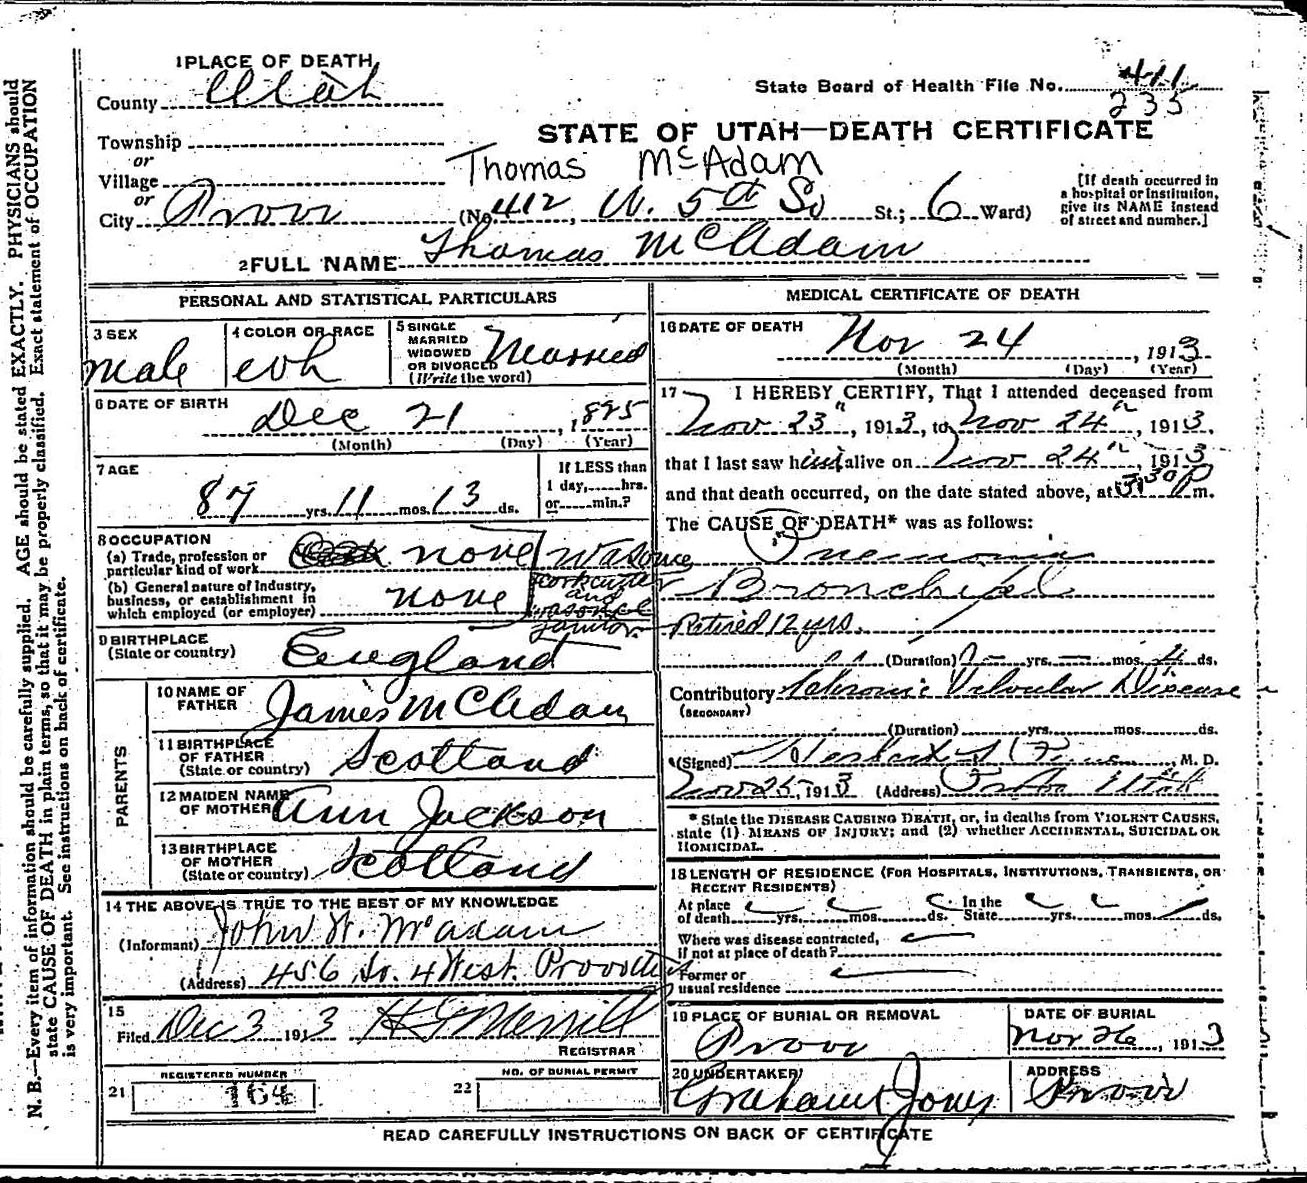 1 PLACE OF DEATH
County Utah
State Board of Health File No. 411
235
STATE OF UTAH—DEATH CERTIFICATE
Township
or
Village
Thomas McAdam
or
City Provo (No. 412, W. 5th So St.; 6 Ward)
[If death occurred in
a hospital or institution,
give its NAME instead
of street and number.]
2 FULL NAME Thomas McAdam
PERSONAL AND STATISTICAL PARTICULARS
3 SEX
male
4 COLOR OR RACE
wh
5 SINGLE
MARRIED
WIDOWED
OR DIVORCED
(Write the word)
Married
6 DATE OF BIRTH
Dec 21, 1825
(Month) (Day) (Year)
7 AGE
87 yrs. 11 mos. 13 ds.
If LESS than
1 day, hrs.
or min.?
8 OCCUPATION
(a) Trade, profession or
particular kind of work none
(b) General nature of industry,
business, or establishment in
which employed (or employer) none
and
janitor
Retired 12 yrs.
9 BIRTHPLACE
(State or country) England
PARENTS
10 NAME OF
FATHER James McAdam
11 BIRTHPLACE
OF FATHER
(State or country) Scotland
12 MAIDEN NAME
OF MOTHER Ann Jackson
13 BIRTHPLACE
OF MOTHER
(State or country) Scotland
14 THE ABOVE IS TRUE TO THE BEST OF MY KNOWLEDGE
(Informant) John W. McAdam
(Address) 456 So. 4 West. Provo
15
Filed Dec 3 1913 H G Merrill
REGISTRAR
21 REGISTERED NUMBER
164
22 NO. OF BURIAL PERMIT
MEDICAL CERTIFICATE OF DEATH
16 DATE OF DEATH
Nov 24, 1913
(Month) (Day) (Year)
17 I HEREBY CERTIFY, That I attended deceased from
Nov 23", 1913, to Nov 24", 1913,
that I last saw him alive on Nov 24", 1913
and that death occurred, on the date stated above, at P m.
The CAUSE OF DEATH* was as follows:
Pneumonia
Bronchial
(Duration) yrs. — mos. 4 ds.
Contributory Chronic Valvular Disease
(SECONDARY)
(Duration) yrs. mos. ds.
(Signed) Herbert, M. D.
Nov 25, 1913 (Address) Utah
* State the DISEASE CAUSING DEATH, or, in deaths from VIOLENT CAUSES,
state (1) MEANS OF INJURY; and (2) whether ACCIDENTAL, SUICIDAL OR
HOMICIDAL.
18 LENGTH OF RESIDENCE (FOR HOSPITALS, INSTITUTIONS, TRANSIENTS, OR
RECENT RESIDENTS)
At place In the
of death yrs. mos. ds. State yrs. mos. ds.
Where was disease contracted,
if not at place of death?
Former or
usual residence
19 PLACE OF BURIAL OR REMOVAL
Provo
DATE OF BURIAL
Nov 26, 1913
20 UNDERTAKER
Graham Jones
ADDRESS
Provo
READ CAREFULLY INSTRUCTIONS ON BACK OF CERTIFICATE
N. B.—Every item of information should be carefully supplied. AGE should be stated EXACTLY. PHYSICIANS should
state CAUSE OF DEATH in plain terms, so that it may be properly classified. Exact statement of OCCUPATION
is very important. See instructions on back of certificate.